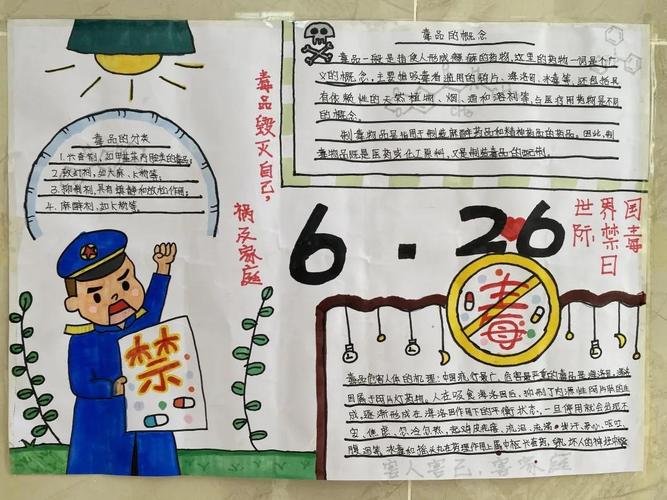 毒品的概念
毒品一般是指使人形成瘾癖的药物,这里的药物一词是个广
义的概念,主要指吸毒者滥用的鸦片、海洛因、冰毒等,还包括具
有依赖性的天然植物、烟、酒和溶剂等,与医疗用药物是不同
的概念。
制毒物品是指用于制造麻醉药品和精神药品的药品。因此,制
毒物品既是医药或化工原料,又是制造毒品的配剂。
毒品的分类
1.兴奋剂,如甲基苯丙胺类的毒品;
2.致幻剂,如大麻、K物等;
3.抑制剂,具有镇静和放松作用;
4.麻醉剂,如
毒品毁灭自己,
祸及家庭
6.26
国际
禁毒
世界
日
禁
毒
毒品危害人体的机理:中国流行最广、危害最严重的毒品是海洛因,海洛
因属于阿片灯药物。人在吸食海洛因后,抑制了内源性阿片肽的生
成,逐渐形成在海洛因作用下的平衡状态,一旦停用就会出现不
安、焦虑、忽冷忽热、起鸡皮疙瘩、流泪、流涕、出汗、恶心、呕吐、
腹
害人害己,害家庭